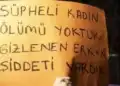 ŞÜPHELİ KADIN
ÖLÜMÜ YOKTUR
GİZLENEN ERKEK
ŞİDDETİ VARDIR